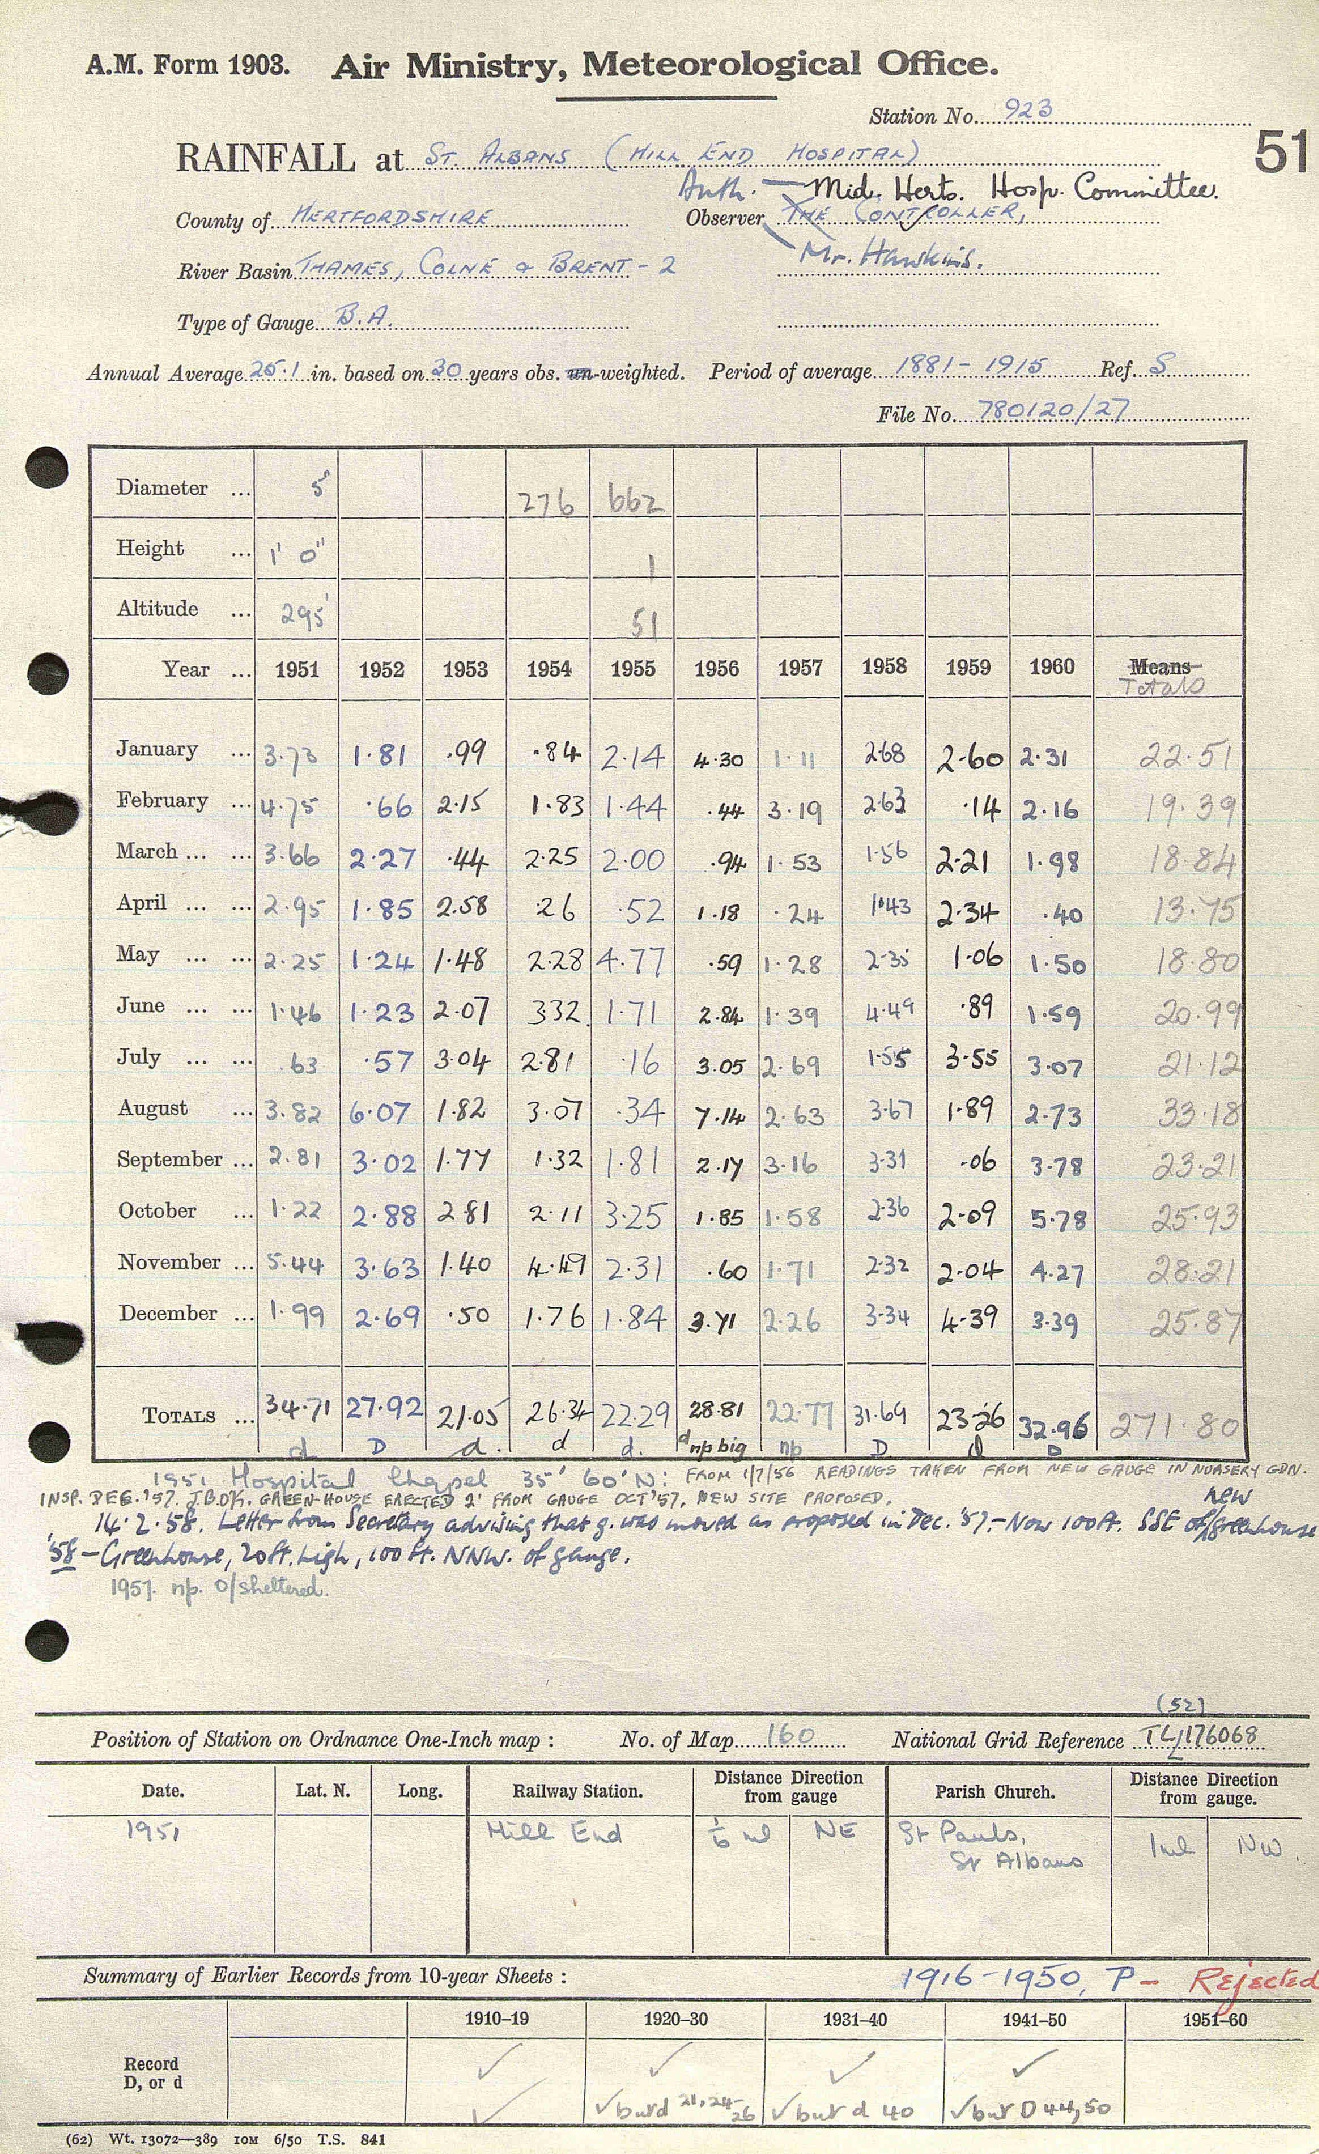 A.M. Form 1903. Air Ministry, Meteorological Office.
Station No. 923
51
RAINFALL at ST. ALBANS (HILL END HOSPITAL)
Auth. — Mid. Herts. Hosp. Committee.
County of HERTFORDSHIRE Observer THE CONTROLLER,
River Basin THAMES, COLNE & BRENT - 2 Mr. Hawkins.
Type of Gauge B.A.
Annual Average 25.1 in. based on 30 years obs. un-weighted. Period of average 1881 - 1915 Ref. S
File No. 780120/27
Diameter ... 5" 276 662
Height ... 1' 0" 1
Altitude ... 295' 51
Year ... 1951 1952 1953 1954 1955 1956 1957 1958 1959 1960 Means
Totals
January ... 3.73 1.81 .99 .84 2.14 4.30 1.11 2.68 2.60 2.31 22.51
February ... 4.75 .66 2.15 1.83 1.44 .44 3.19 2.63 .14 2.16 19.39
March ... ... 3.66 2.27 .44 2.25 2.00 .94 1.53 1.56 2.21 1.98 18.84
April ... ... 2.95 1.85 2.58 .26 .52 1.18 .24 1.43 2.34 .40 13.75
May ... ... 2.25 1.24 1.48 2.28 4.77 .59 1.28 2.35 1.06 1.50 18.80
June ... ... 1.46 1.23 2.07 3.32 1.71 2.84 1.39 4.49 .89 1.59 20.99
July ... ... .63 .57 3.04 2.81 .16 3.05 2.69 1.55 3.55 3.07 21.12
August ... 3.82 6.07 1.82 3.07 .34 7.14 2.63 3.67 1.89 2.73 33.18
September ... 2.81 3.02 1.77 1.32 1.81 2.17 3.16 3.31 .06 3.78 23.21
October ... 1.22 2.88 2.81 2.11 3.25 1.85 1.58 2.36 2.09 5.78 25.93
November ... 5.44 3.63 1.40 4.49 2.31 .60 1.71 2.32 2.04 4.27 28.21
December ... 1.99 2.69 .50 1.76 1.84 3.71 2.26 3.34 4.39 3.39 25.87
TOTALS ... 34.71 27.92 21.05 26.34 22.29 28.81 22.77 31.69 23.26 32.96 271.80
d D d. d d. d np big np D d D
1951 Hospital Chapel 35' 60' N: FROM 1/7/56 READINGS TAKEN FROM NEW GAUGE IN NURSERY GDN.
INSP. DEC. '57. J.B.O'K. GREEN-HOUSE ERECTED 2' FROM GAUGE OCT '57. NEW SITE PROPOSED.
14.2.58. Letter from Secretary advising that g. was moved as proposed in Dec. '57. - Now 100ft. SSE of new greenhouse
'58 - Greenhouse, 20ft. high, 100 ft. NNW. of gauge.
1957. np. o/sheltered.
(52)
Position of Station on Ordnance One-Inch map : No. of Map 160 National Grid Reference TL/176068
Date. Lat. N. Long. Railway Station. Distance Direction from gauge Parish Church. Distance Direction from gauge.
1951 Hill End 1/6 ml NE St Pauls, St Albans 1ml NW.
Summary of Earlier Records from 10-year Sheets : 1916-1950, P - Rejected
1910-19 1920-30 1931-40 1941-50 1951-60
Record D, or d ✓ ✓ ✓ ✓
✓ ✓ but d 21, 24-26 ✓ but d 40 ✓ but D 44, 50
(62) Wt. 13072—389 10M 6/50 T.S. 841